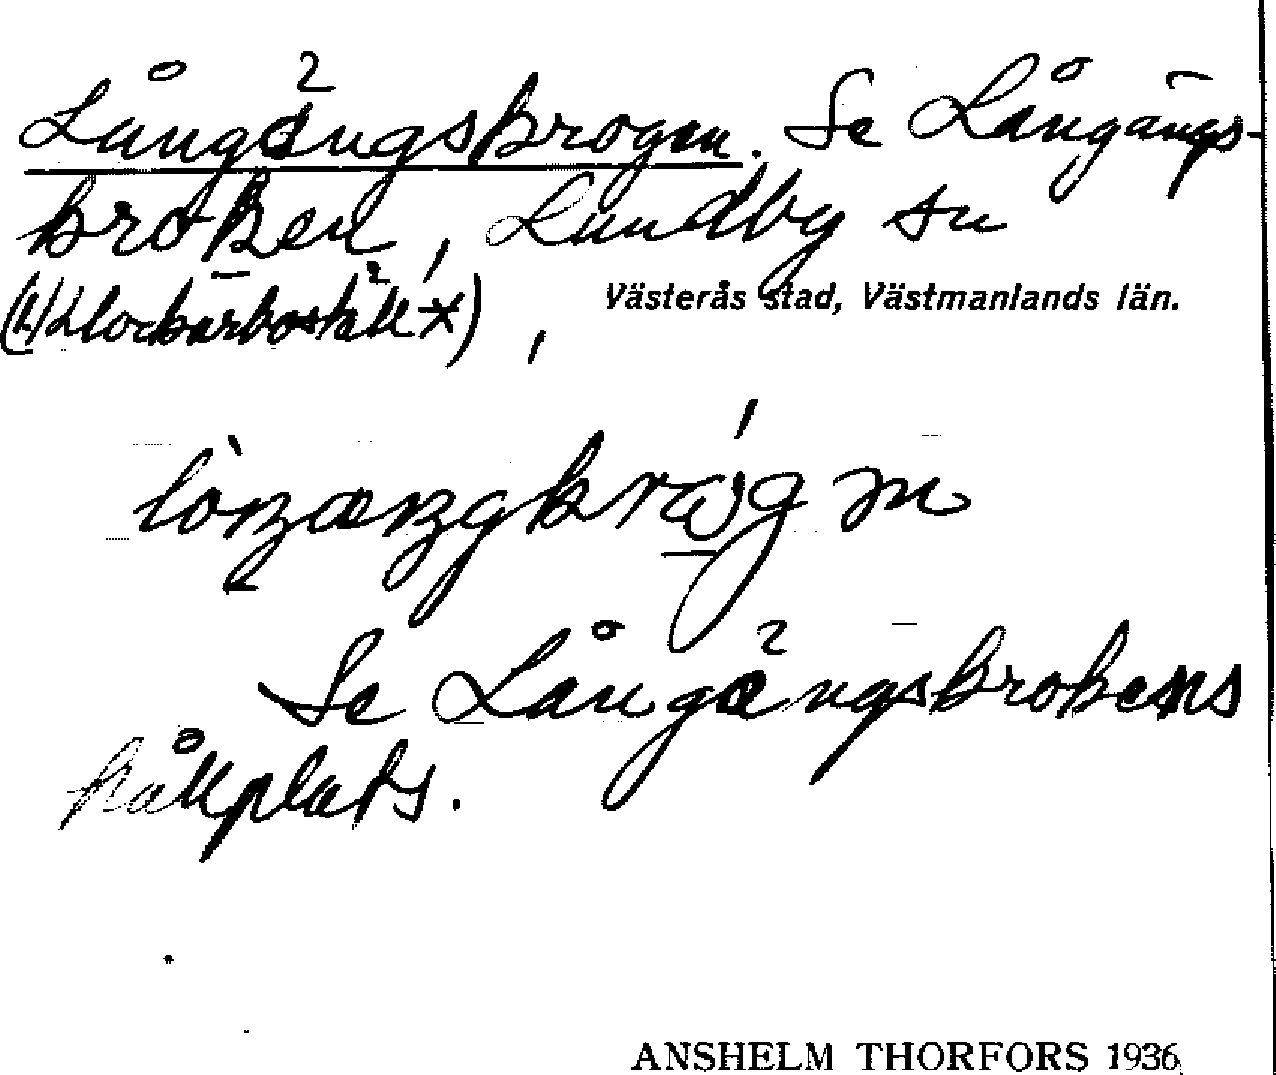 Långängsbrogen. Se Långängs-
broken, Lundby sn
Klockarboställ *),
Västerås stad, Västmanlands län.
Se Långängsbrokens
hållplats.
ANSHELM THORFORS 1936